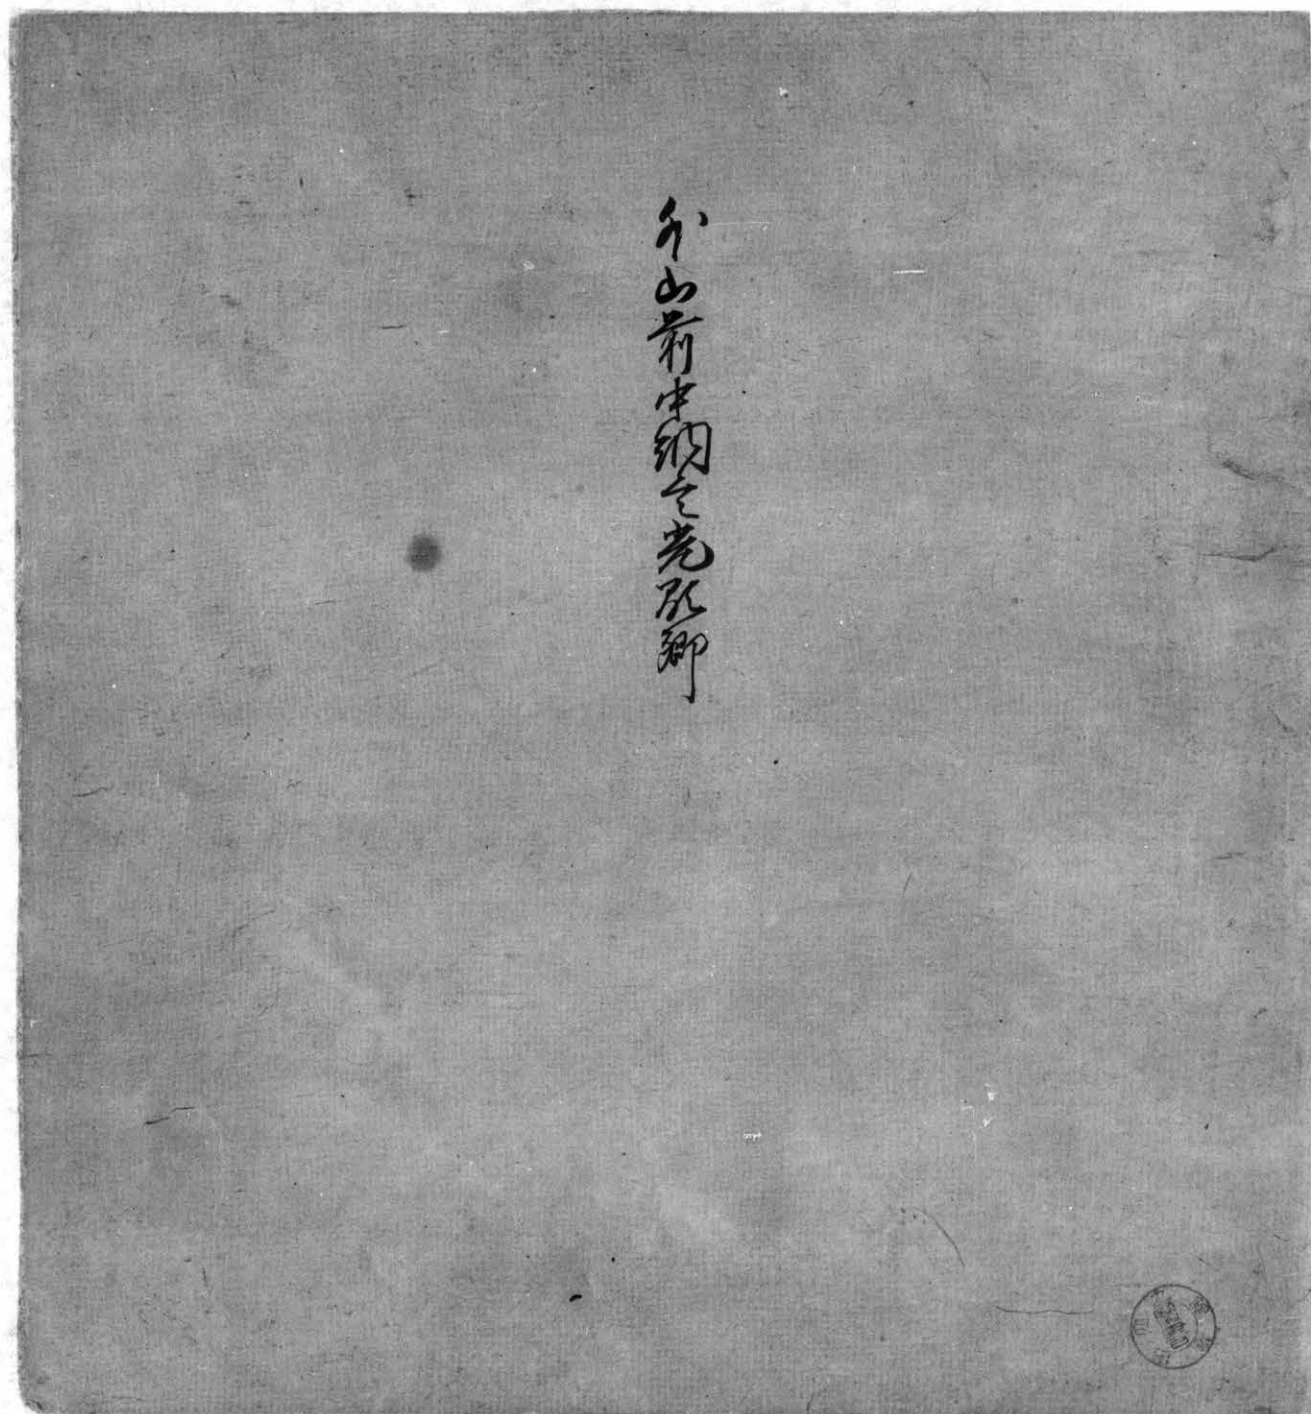 外山前中納言光顕卿